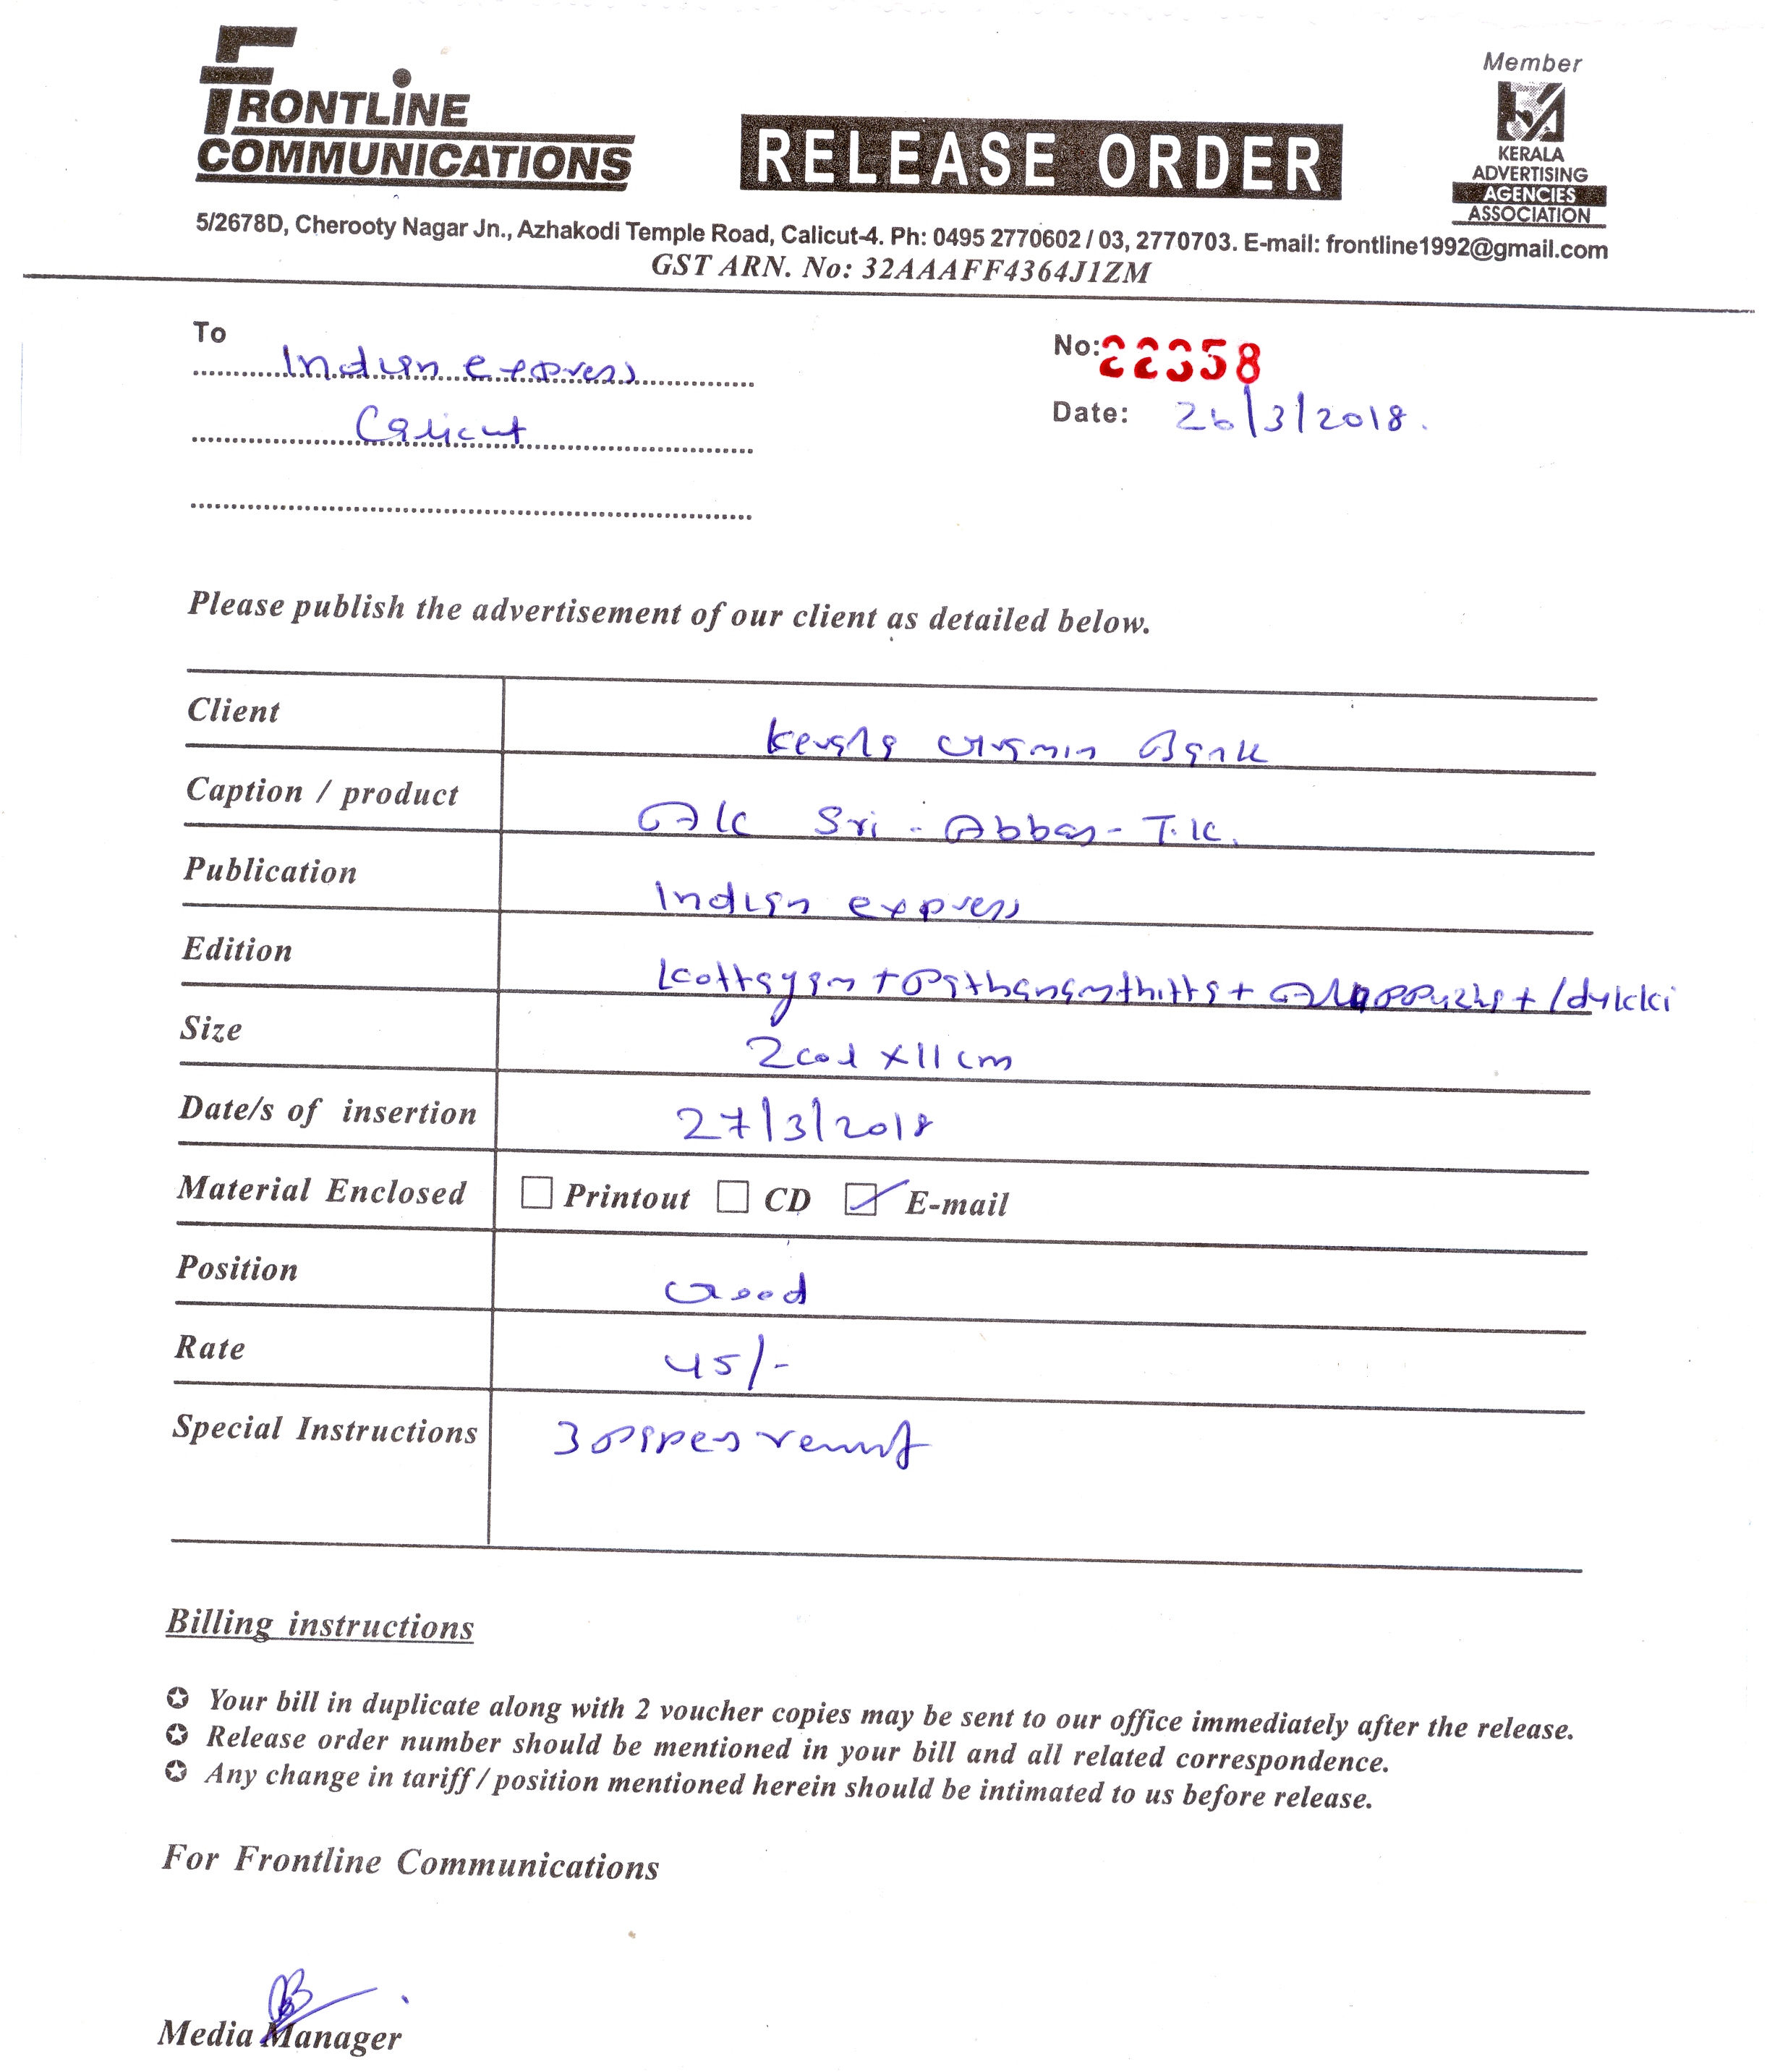 FRONTLINE
COMMUNICATIONS
RELEASE ORDER
Member
KERALA
ADVERTISING
AGENCIES
ASSOCIATION
5/2678D, Cherooty Nagar Jn., Azhakodi Temple Road, Calicut-4. Ph: 0495 2770602 / 03, 2770703. E-mail: frontline1992@gmail.com
GST ARN. No: 32AAAFF4364J1ZM
To
Indian express
Calicut
No: 22358
Date: 26/3/2018.
Please publish the advertisement of our client as detailed below.
Client Kerala Gramin Bank
Caption / product A/c Sri - Abbas - T.K.
Publication Indian express
Edition Kottayam + Pathanamthitta + Alappuzha + Idukki
Size 2 col x 11 cm
Date/s of insertion 27/3/2018
Material Enclosed Printout CD E-mail
Position Good
Rate 45/-
Special Instructions 3
Billing instructions
Your bill in duplicate along with 2 voucher copies may be sent to our office immediately after the release.
Release order number should be mentioned in your bill and all related correspondence.
Any change in tariff / position mentioned herein should be intimated to us before release.
For Frontline Communications
Media Manager